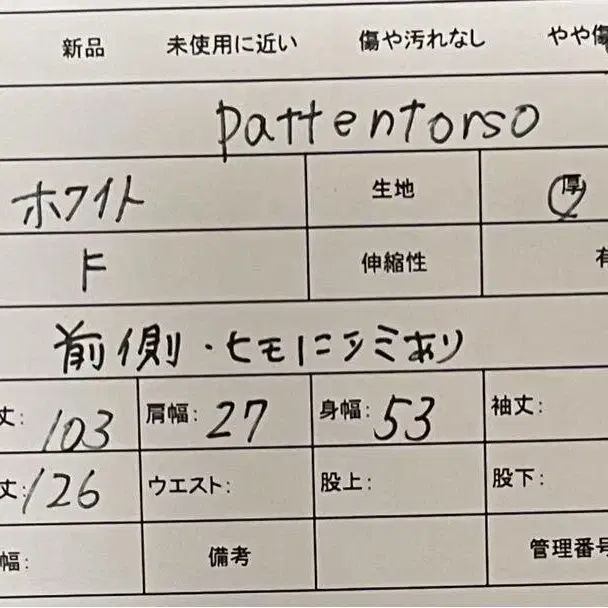 新品 未使用に近い 傷や汚れなし やや傷
pattentorso
ホワイト 生地 厚
F 伸縮性 有
前側・ヒモにシミあり
丈: 103 肩幅: 27 身幅: 53 袖丈:
丈: 126 ウエスト: 股上: 股下:
幅: 備考 管理番号